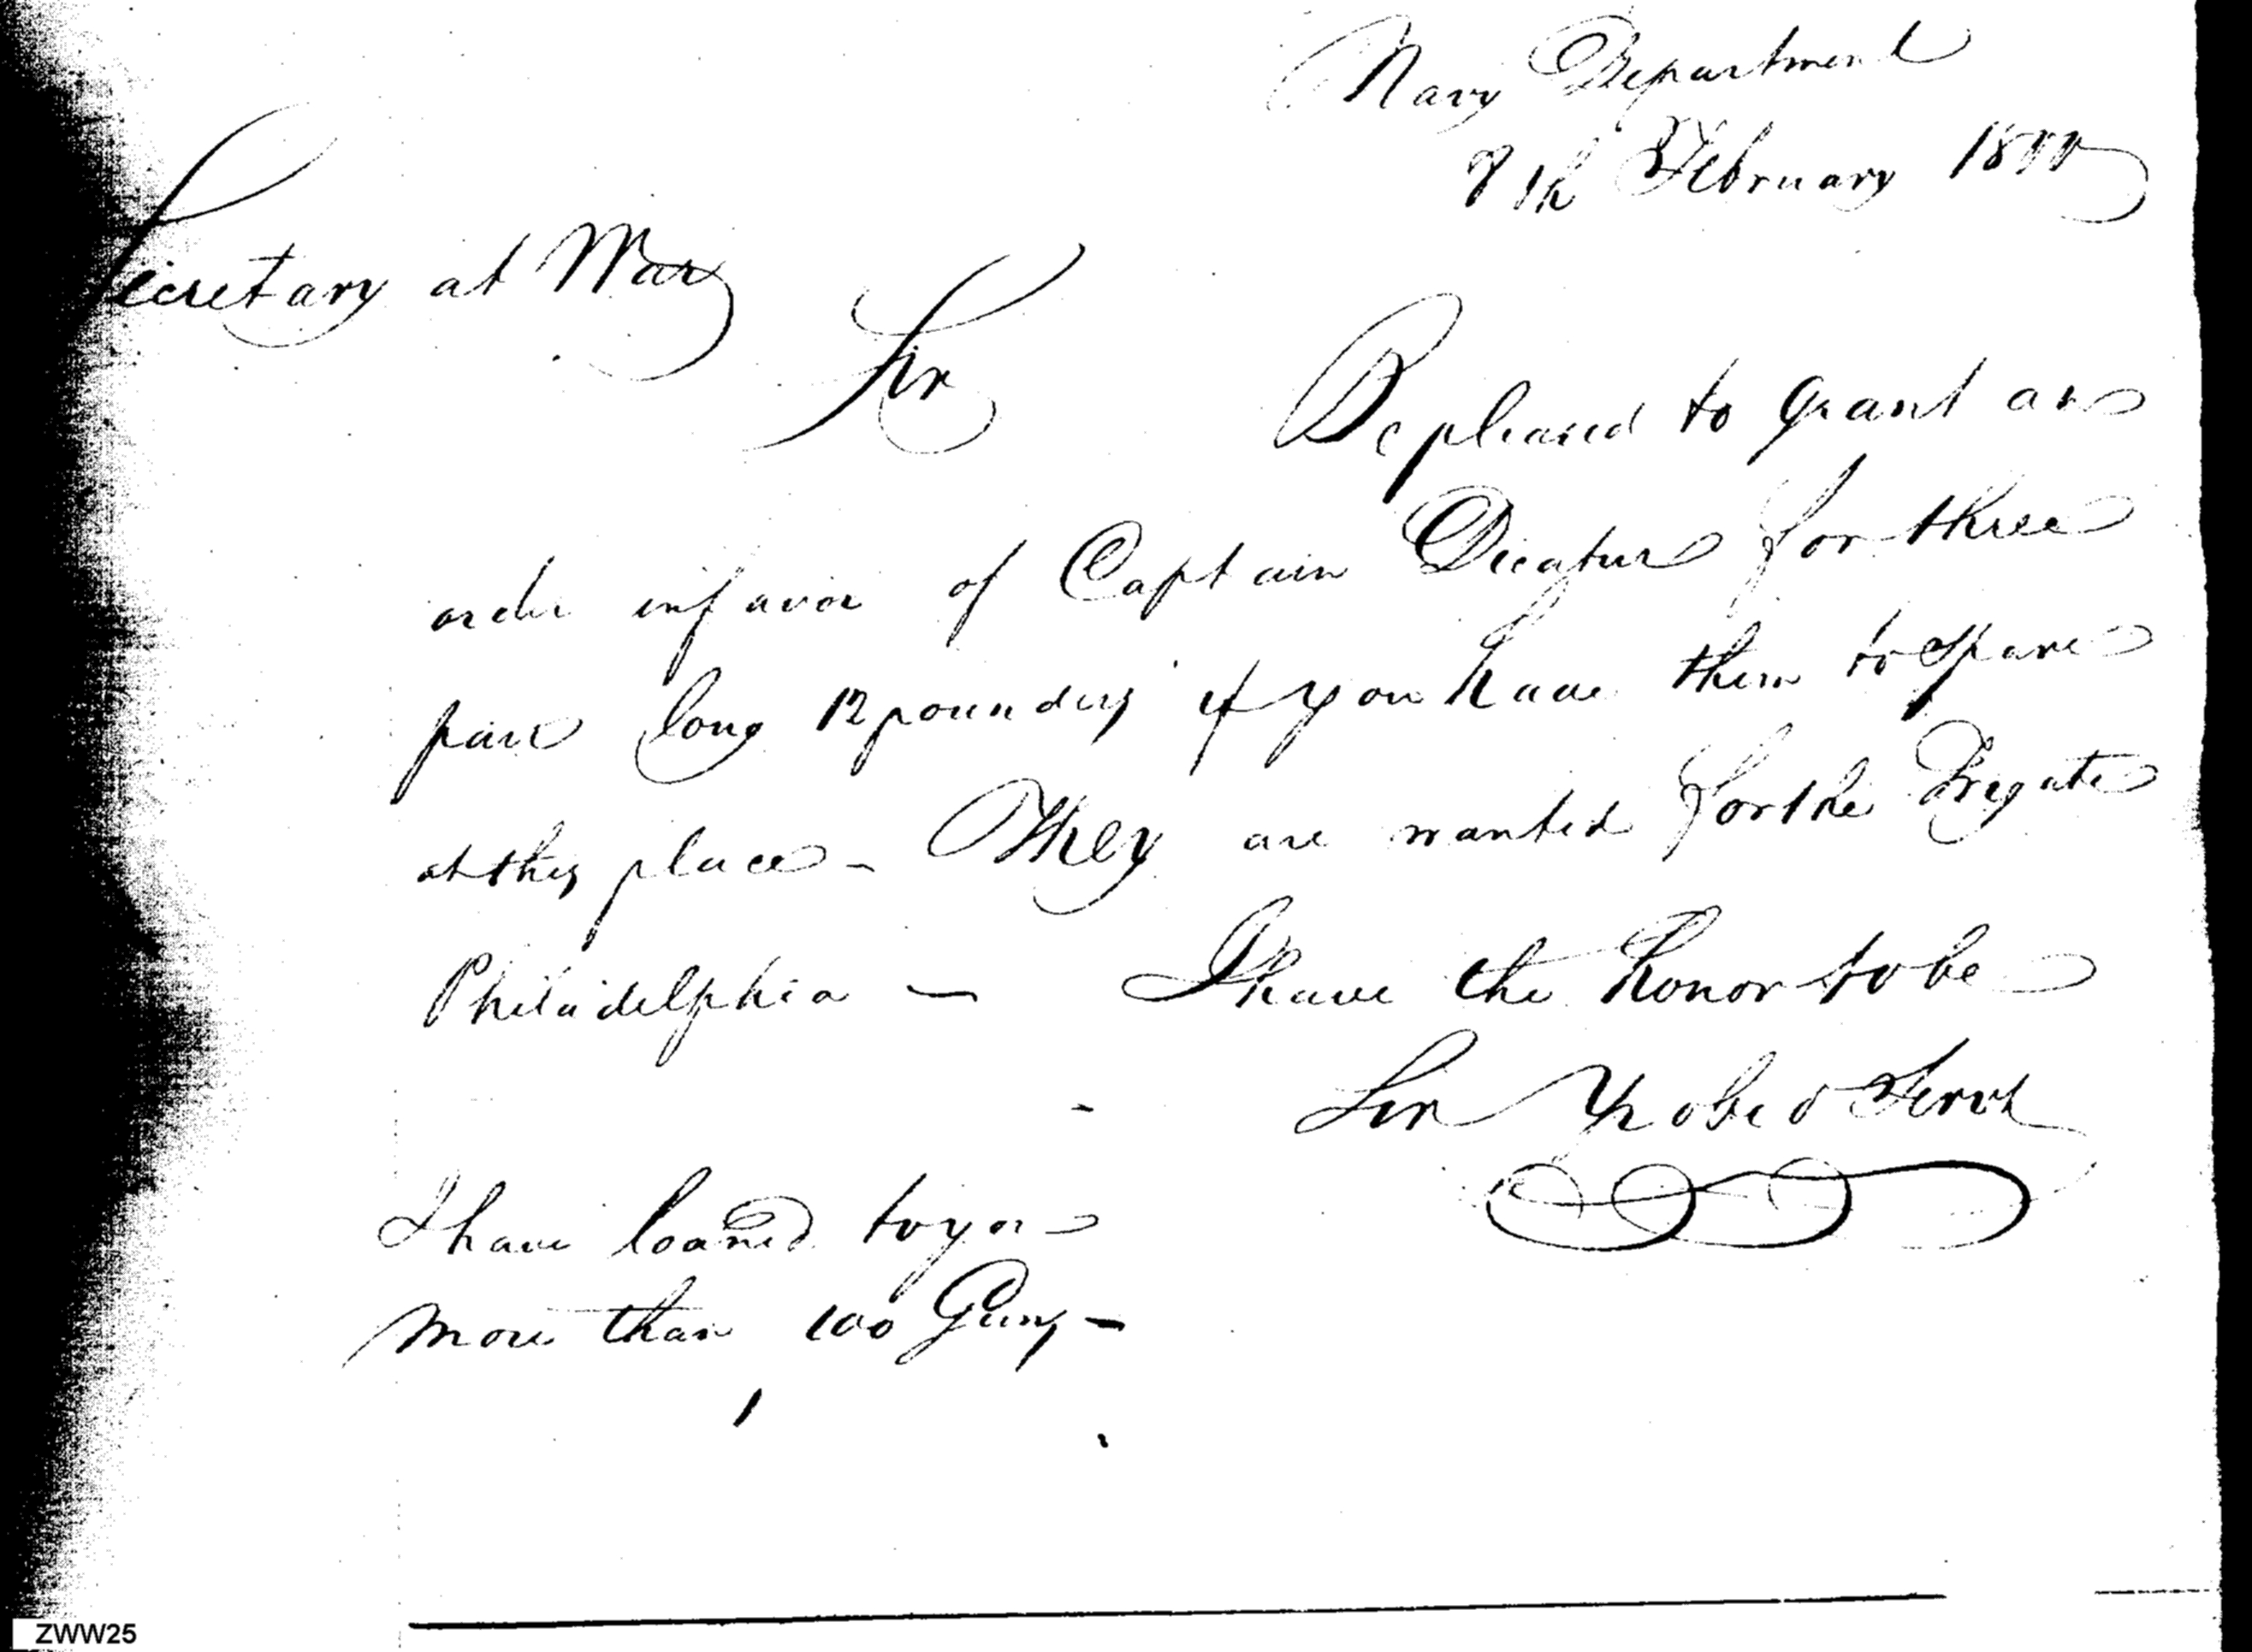 Navy Department
7th February 1800
Secretary at War
Sir
Be pleased to grant an
order in favor of Captain Decatur for three
pair long 12 pounders if you have them to spare
at this place - They are wanted for the Frigate
Philadelphia — I have the honor to be
Sir Yr obed Servt
I have loaned to you
more than 100 Guns -
ZWW25